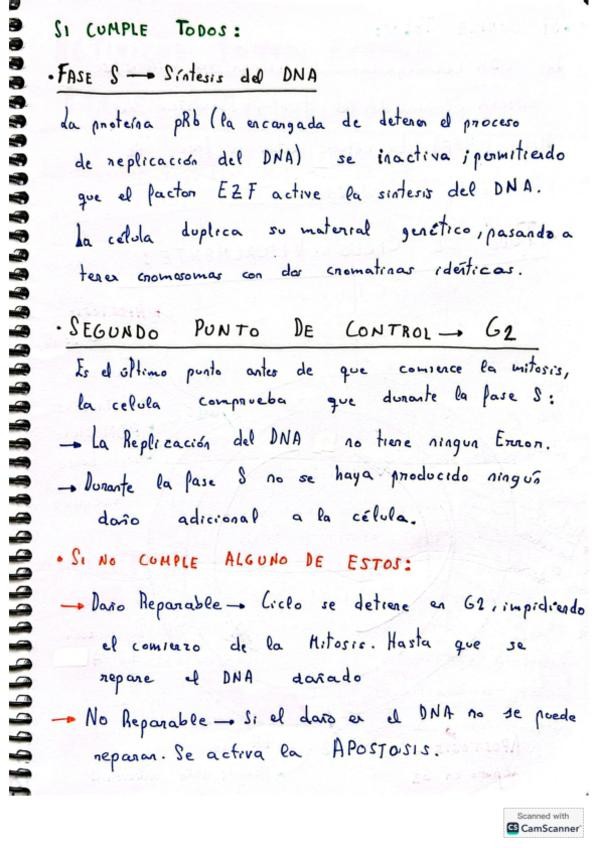 SI CUMPLE TODOS:
• FASE S → Síntesis del DNA
La proteína pRb (la encargada de detener el proceso
de replicación del DNA) se inactiva, permitiendo
que el factor E2F active la síntesis del DNA.
La célula duplica su material genético, pasando a
tener cromosomas con dos cromatinas idénticas.
• SEGUNDO PUNTO DE CONTROL → G2
Es el último punto antes de que comience la mitosis,
la celula comprueba que durante la fase S:
→ La Replicación del DNA no tiene ningun Error.
→ Durante la fase S no se haya producido ningún
daño adicional a la célula.
• SI NO CUMPLE ALGUNO DE ESTOS:
→ Daño Reparable → Ciclo se detiene en G2, impidiendo
el comienzo de la Mitosis. Hasta que se
repare el DNA dañado
→ No Reparable → Si el daño en el DNA no se puede
reparar. Se activa la APOSTOSIS.
Scanned with
CS CamScanner